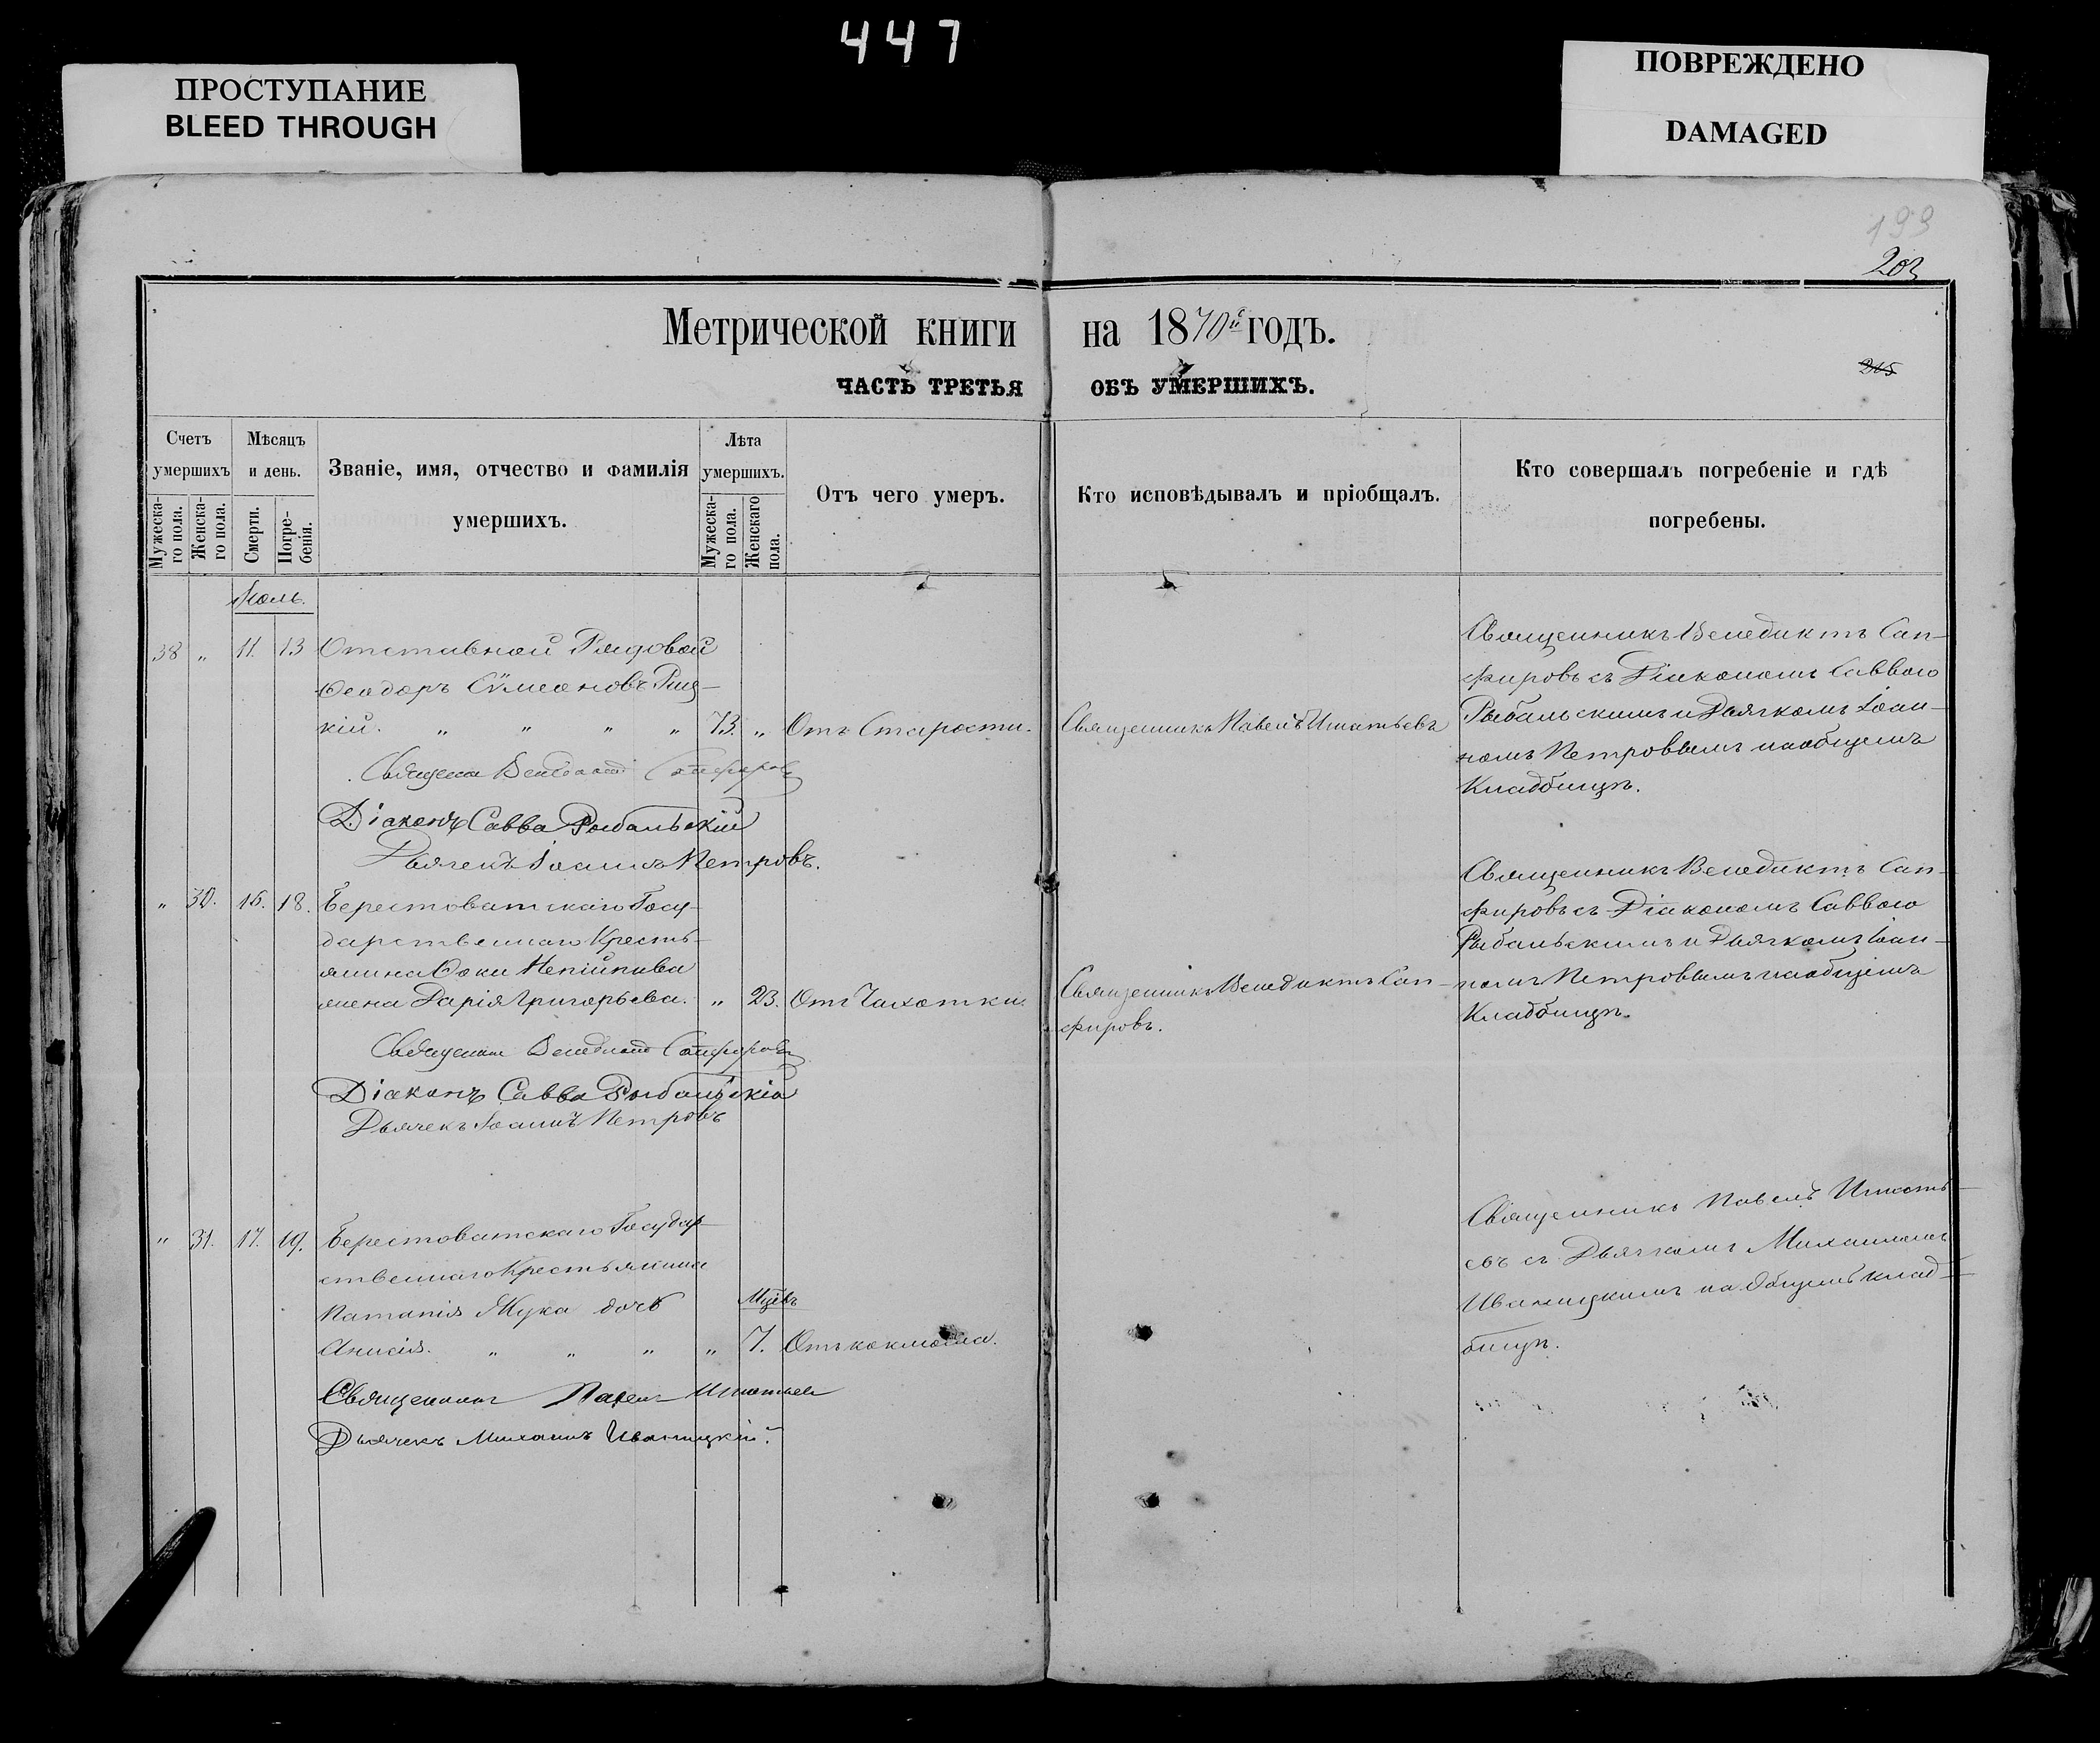 447
ПРОСТУПАНИЕ
BLEED THROUGH
ПОВРЕЖДЕНО
DAMAGED
199
203
Метрической книги на 1870й годъ.
215
ЧАСТЬ ТРЕТЬЯ ОБЪ УМЕРШИХЪ.
Счетъ умершихъ
Мужеска-го пола.
Женска-го пола.
Мѣсяцъ и день.
Смерти.
Погре-бенія.
Званіе, имя, отчество и фамилія умершихъ.
Лѣта умершихъ.
Мужеска-го пола.
Женскаго пола.
Отъ чего умеръ.
Кто исповѣдывалъ и пріобщалъ.
Кто совершалъ погребеніе и гдѣ погребены.
Іюль.
38 „ 11. 13 Отставной Рядовой
Ѳеодоръ Сѵмеоновъ
кій. „ „ „ „ 73. „ Отъ Старости.
Священникъ Павелъ Игнатьевъ
Священникъ Венедиктъ Сап-
фировъ съ Діакономъ Саввою
Рыбальскимъ и Дьячкомъ Іоан-
номъ Петровымъ на общемъ
Кладбищѣ.
Священ Венедиктъ Сапфировъ
Діаконъ Савва Рыбальскій
Дьячекъ Іоаннъ Петровъ.
„ 30. 16. 18. Берестоватскаго Госу-
дарственнаго Кресть-
янина Ѳоки
жена Дарія Григорьева. „ 23. Отъ Чахотки
Священникъ Венедиктъ Сап-
фировъ.
Священникъ Венедиктъ Сап-
фировъ съ Діакономъ Саввою
Рыбальскимъ и Дьячкомъ Іоан-
номъ Петровымъ на общемъ
Кладбищѣ.
Священник Венедиктъ Сапфировъ
Діаконъ Савва Рыбальскій
Дьячекъ Іоаннъ Петровъ
„ 31. 17. 19. Берестоватскаго Государ-
ственнаго Крестьянина
Потапія Жука дочь
Мцевъ
Анисія. „ „ „ „ 7. Отъ коклюша.
Священникъ Павелъ Игнать-
евъ съ Дьячкомъ Михаиломъ
Иваницкимъ на общемъ клад-
бищѣ.
Священникъ Павелъ Игнатьев
Дьячекъ Михаилъ Иваницкій.